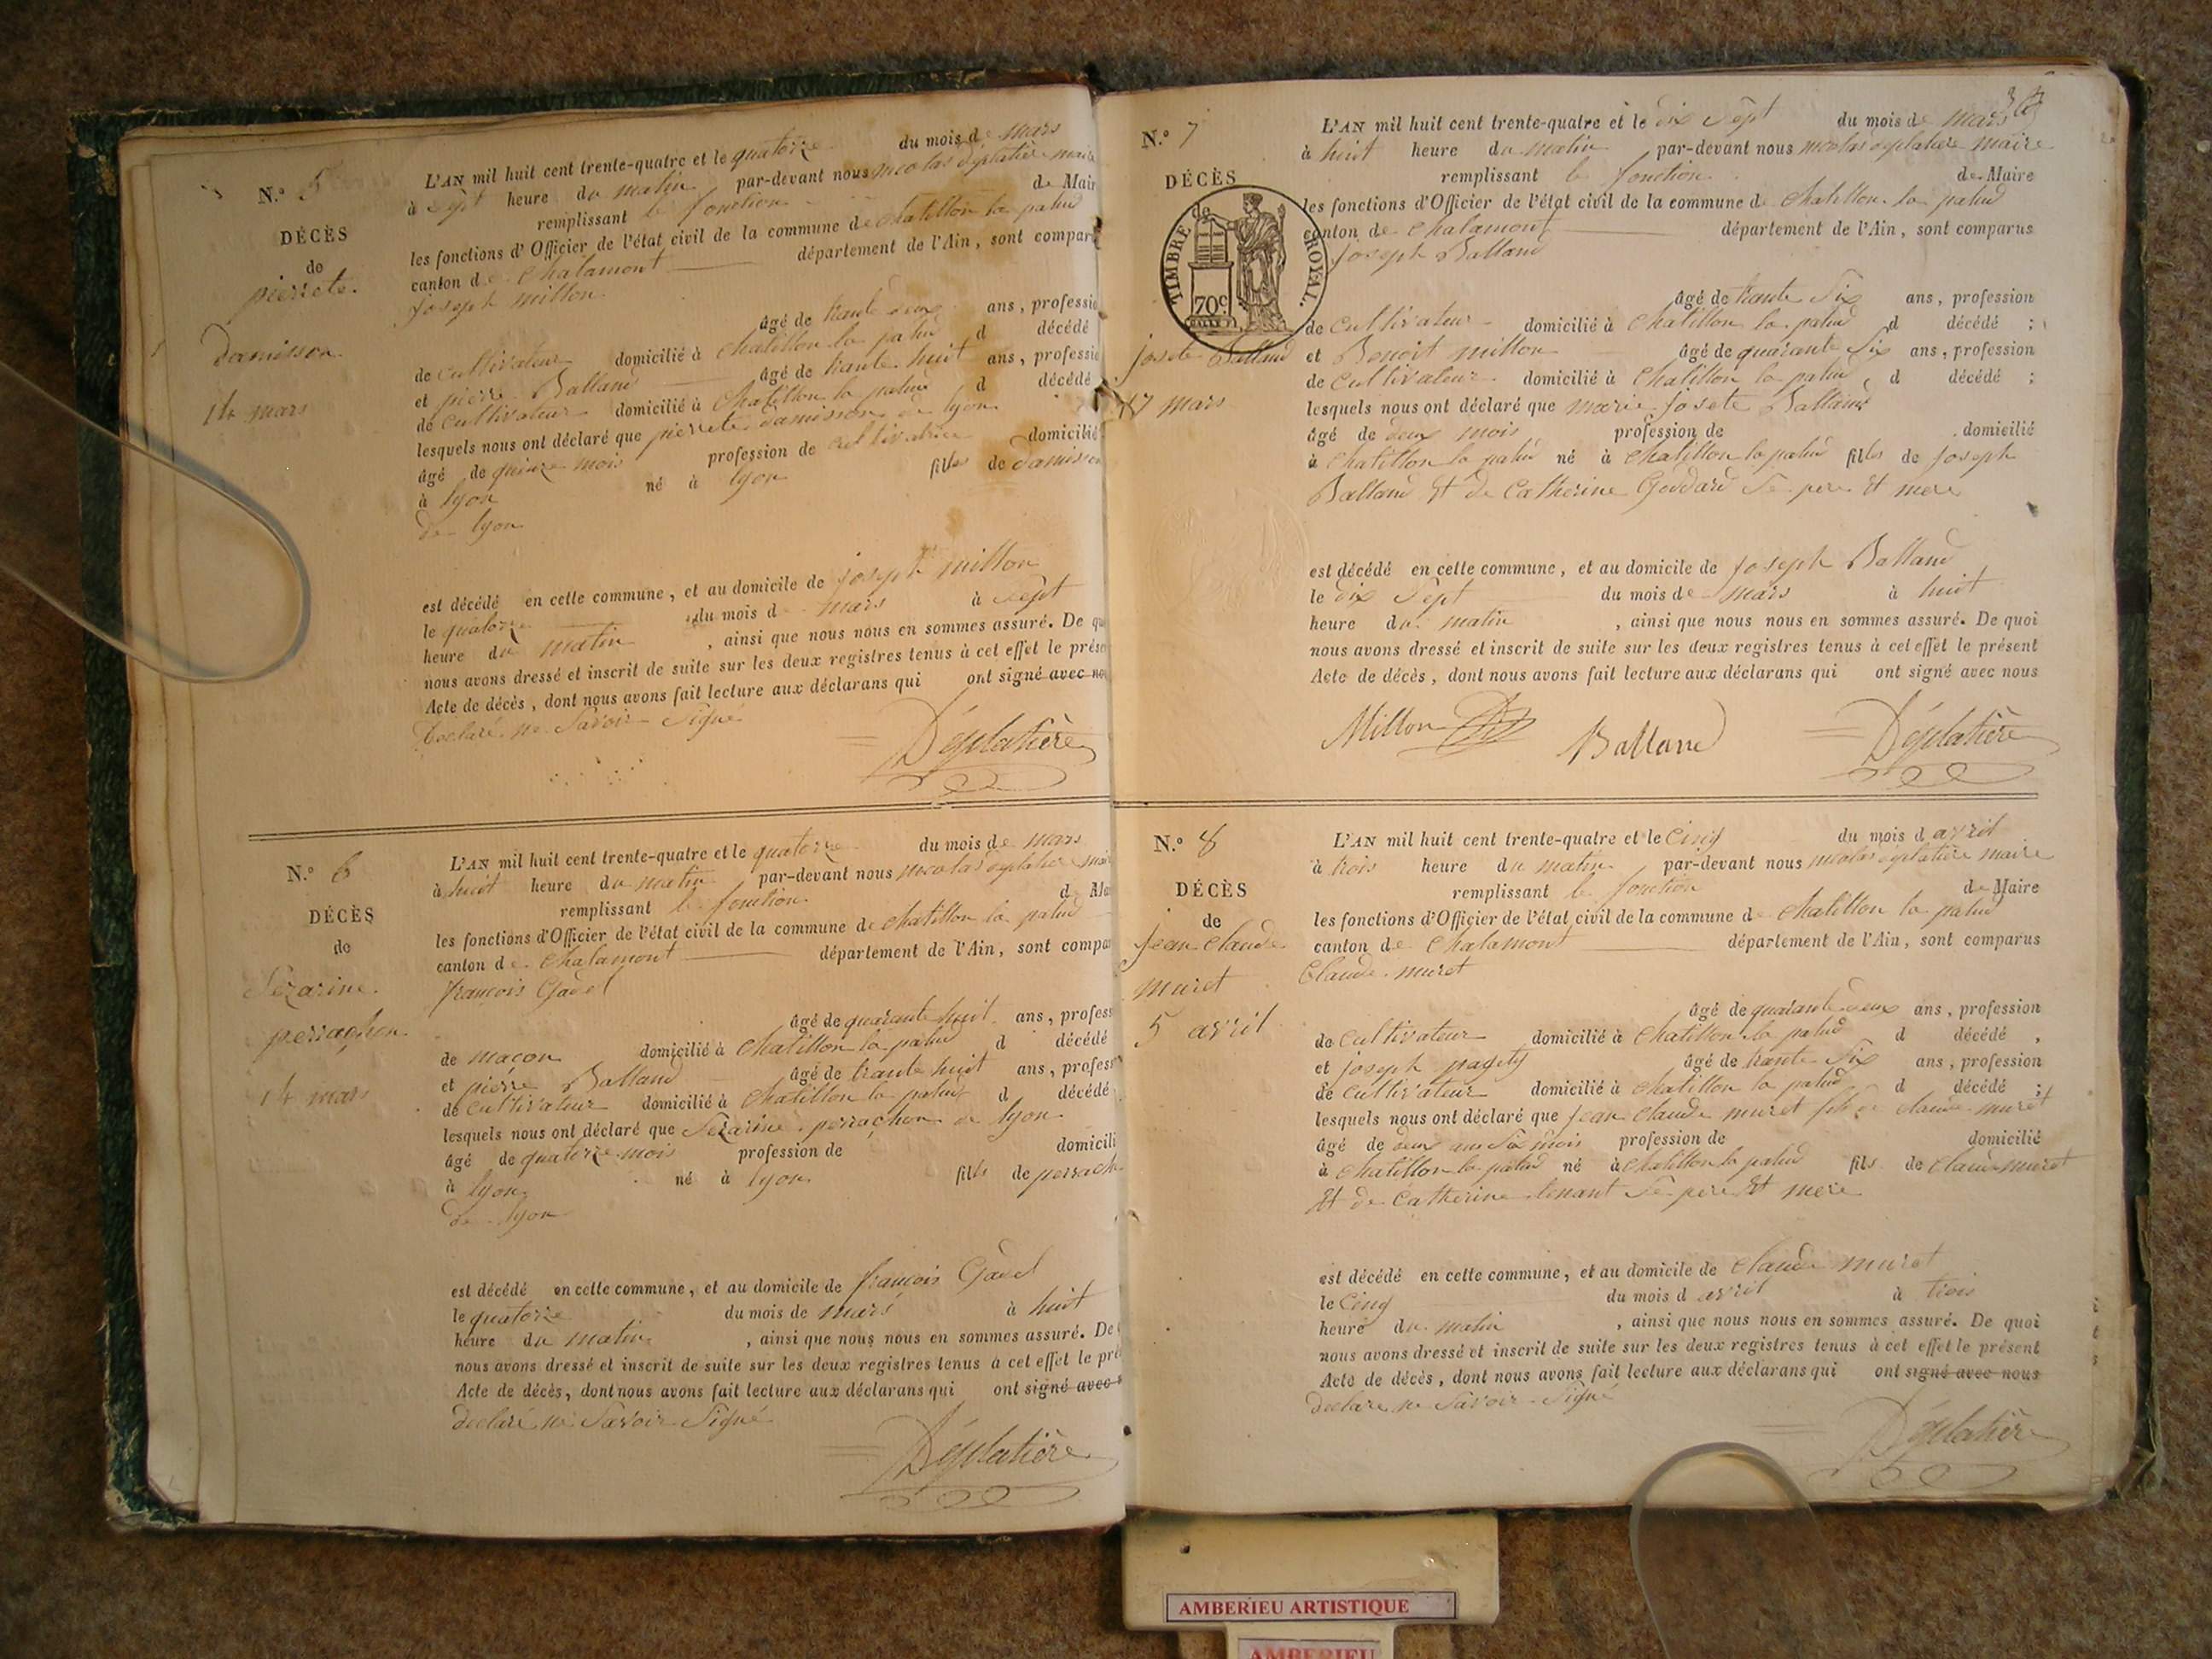 N.° 5
DÉCÈS
de
pierrete
damisson
14 mars
L'AN mil huit cent trente-quatre et le quatorze du mois de mars
à sept heure du matin par-devant nous nicolas déplatière maire
remplissant le fonction de Mair
les fonctions d'Officier de l'état civil de la commune de chatillon la palud
canton de Chalamont département de l'Ain, sont compar
joseph millon
âgé de trante deux ans, professio
de cultivateur domicilié à chatillon la palud d décédé
et pierre Balland âgé de trante huit ans, professio
de cultivateur domicilié à chatillon la palud d décédé
lesquels nous ont déclaré que pierrete damisson de lyon
âgé de quinze mois profession de cultivatrice domicilié
à lyon né à lyon fille de damisson
de lyon
est décédé en cette commune, et au domicile de joseph millon
le quatorze du mois de mars à sept
heure du matin, ainsi que nous nous en sommes assuré. De qu
nous avons dressé et inscrit de suite sur les deux registres tenus à cet effet le prése
Acte de décès, dont nous avons fait lecture aux déclarans qui ont signé avec no
declaré ne Savoir Signé
Déplatière
N.° 6
DÉCÈS
de
Sezarine
perrachon
14 mars
L'AN mil huit cent trente-quatre et le quatorze du mois de mars
à huit heure du matin par-devant nous nicolas déplatière mair
remplissant le fonction de Ma
les fonctions d'Officier de l'état civil de la commune de chatillon la palud
canton de Chalamont département de l'Ain, sont compar
françois Gadel
âgé de quarante huit ans, profess
de maçon domicilié à chatillon la palud d décédé
et pierre Balland âgé de trante huit ans, profess
de cultivateur domicilié à chatillon la palud d décédé
lesquels nous ont déclaré que Sezarine perrachon de lyon
âgé de quatorze mois profession de domicili
à lyon né à lyon fille de perrach
de lyon
est décédé en cette commune, et au domicile de françois Gadel
le quatorze du mois de mars à huit
heure du matin, ainsi que nous nous en sommes assuré. De
nous avons dressé et inscrit de suite sur les deux registres tenus à cet effet le pré
Acte de décès, dont nous avons fait lecture aux déclarans qui ont signé avec
declaré ne Savoir Signé
Déplatière
N.° 7
DÉCÈS
de
TIMBRE ROYAL.
70c
josete Balland
17 mars
L'AN mil huit cent trente-quatre et le dix Sept du mois de mars
à huit heure du matin par-devant nous nicolas déplatière maire
remplissant le fonction de Maire
les fonctions d'Officier de l'état civil de la commune de Chatillon la palud
canton de Chalamont département de l'Ain, sont comparus
joseph Balland
âgé de trante Six ans, profession
de Cultivateur domicilié à Chatillon la palud d décédé ;
et Benoit millon âgé de quarante Six ans, profession
de Cultivateur domicilié à Chatillon la palud, d décédé ;
lesquels nous ont déclaré que marie josete Balland
âgé de deux mois profession de domicilié
à Chatillon la palud né à Chatillon la palud fille de joseph
Balland Et de Catherine Goddard Se pere Et mere
est décédé en cette commune, et au domicile de joseph Balland
le dix Sept du mois de mars à huit
heure du matin, ainsi que nous nous en sommes assuré. De quoi
nous avons dressé et inscrit de suite sur les deux registres tenus à cet effet le présent
Acte de décès, dont nous avons fait lecture aux déclarans qui ont signé avec nous
Millon Balland Déplatière
N.° 8
DÉCÈS
de
jean claude
muret
5 avril
L'AN mil huit cent trente-quatre et le cinq du mois d avril
à trois heure du matin par-devant nous nicolas déplatière maire
remplissant le fonction de Maire
les fonctions d'Officier de l'état civil de la commune de chatillon la palud
canton de Chalamont département de l'Ain, sont comparus
Claude muret
âgé de quarante deux ans, profession
de cultivateur domicilié à Chatillon la palud d décédé,
et joseph âgé de trante Six ans, profession
de cultivateur domicilié à chatillon la palud d décédé ;
lesquels nous ont déclaré que jean claude muret fils de claude muret
âgé de deux ans Six mois profession de domicilié
à Chatillon la palud né à chatillon la palud fils de claude muret
Et de Catherine tenant Se pere Et mere
est décédé en cette commune, et au domicile de Claude muret
le cinq du mois d avril à trois
heure du matin, ainsi que nous nous en sommes assuré. De quoi
nous avons dressé et inscrit de suite sur les deux registres tenus à cet effet le présent
Acte de décès, dont nous avons fait lecture aux déclarans qui ont signé avec nous
declaré ne Savoir Signé
Déplatière
AMBERIEU ARTISTIQUE
AMBERIEU